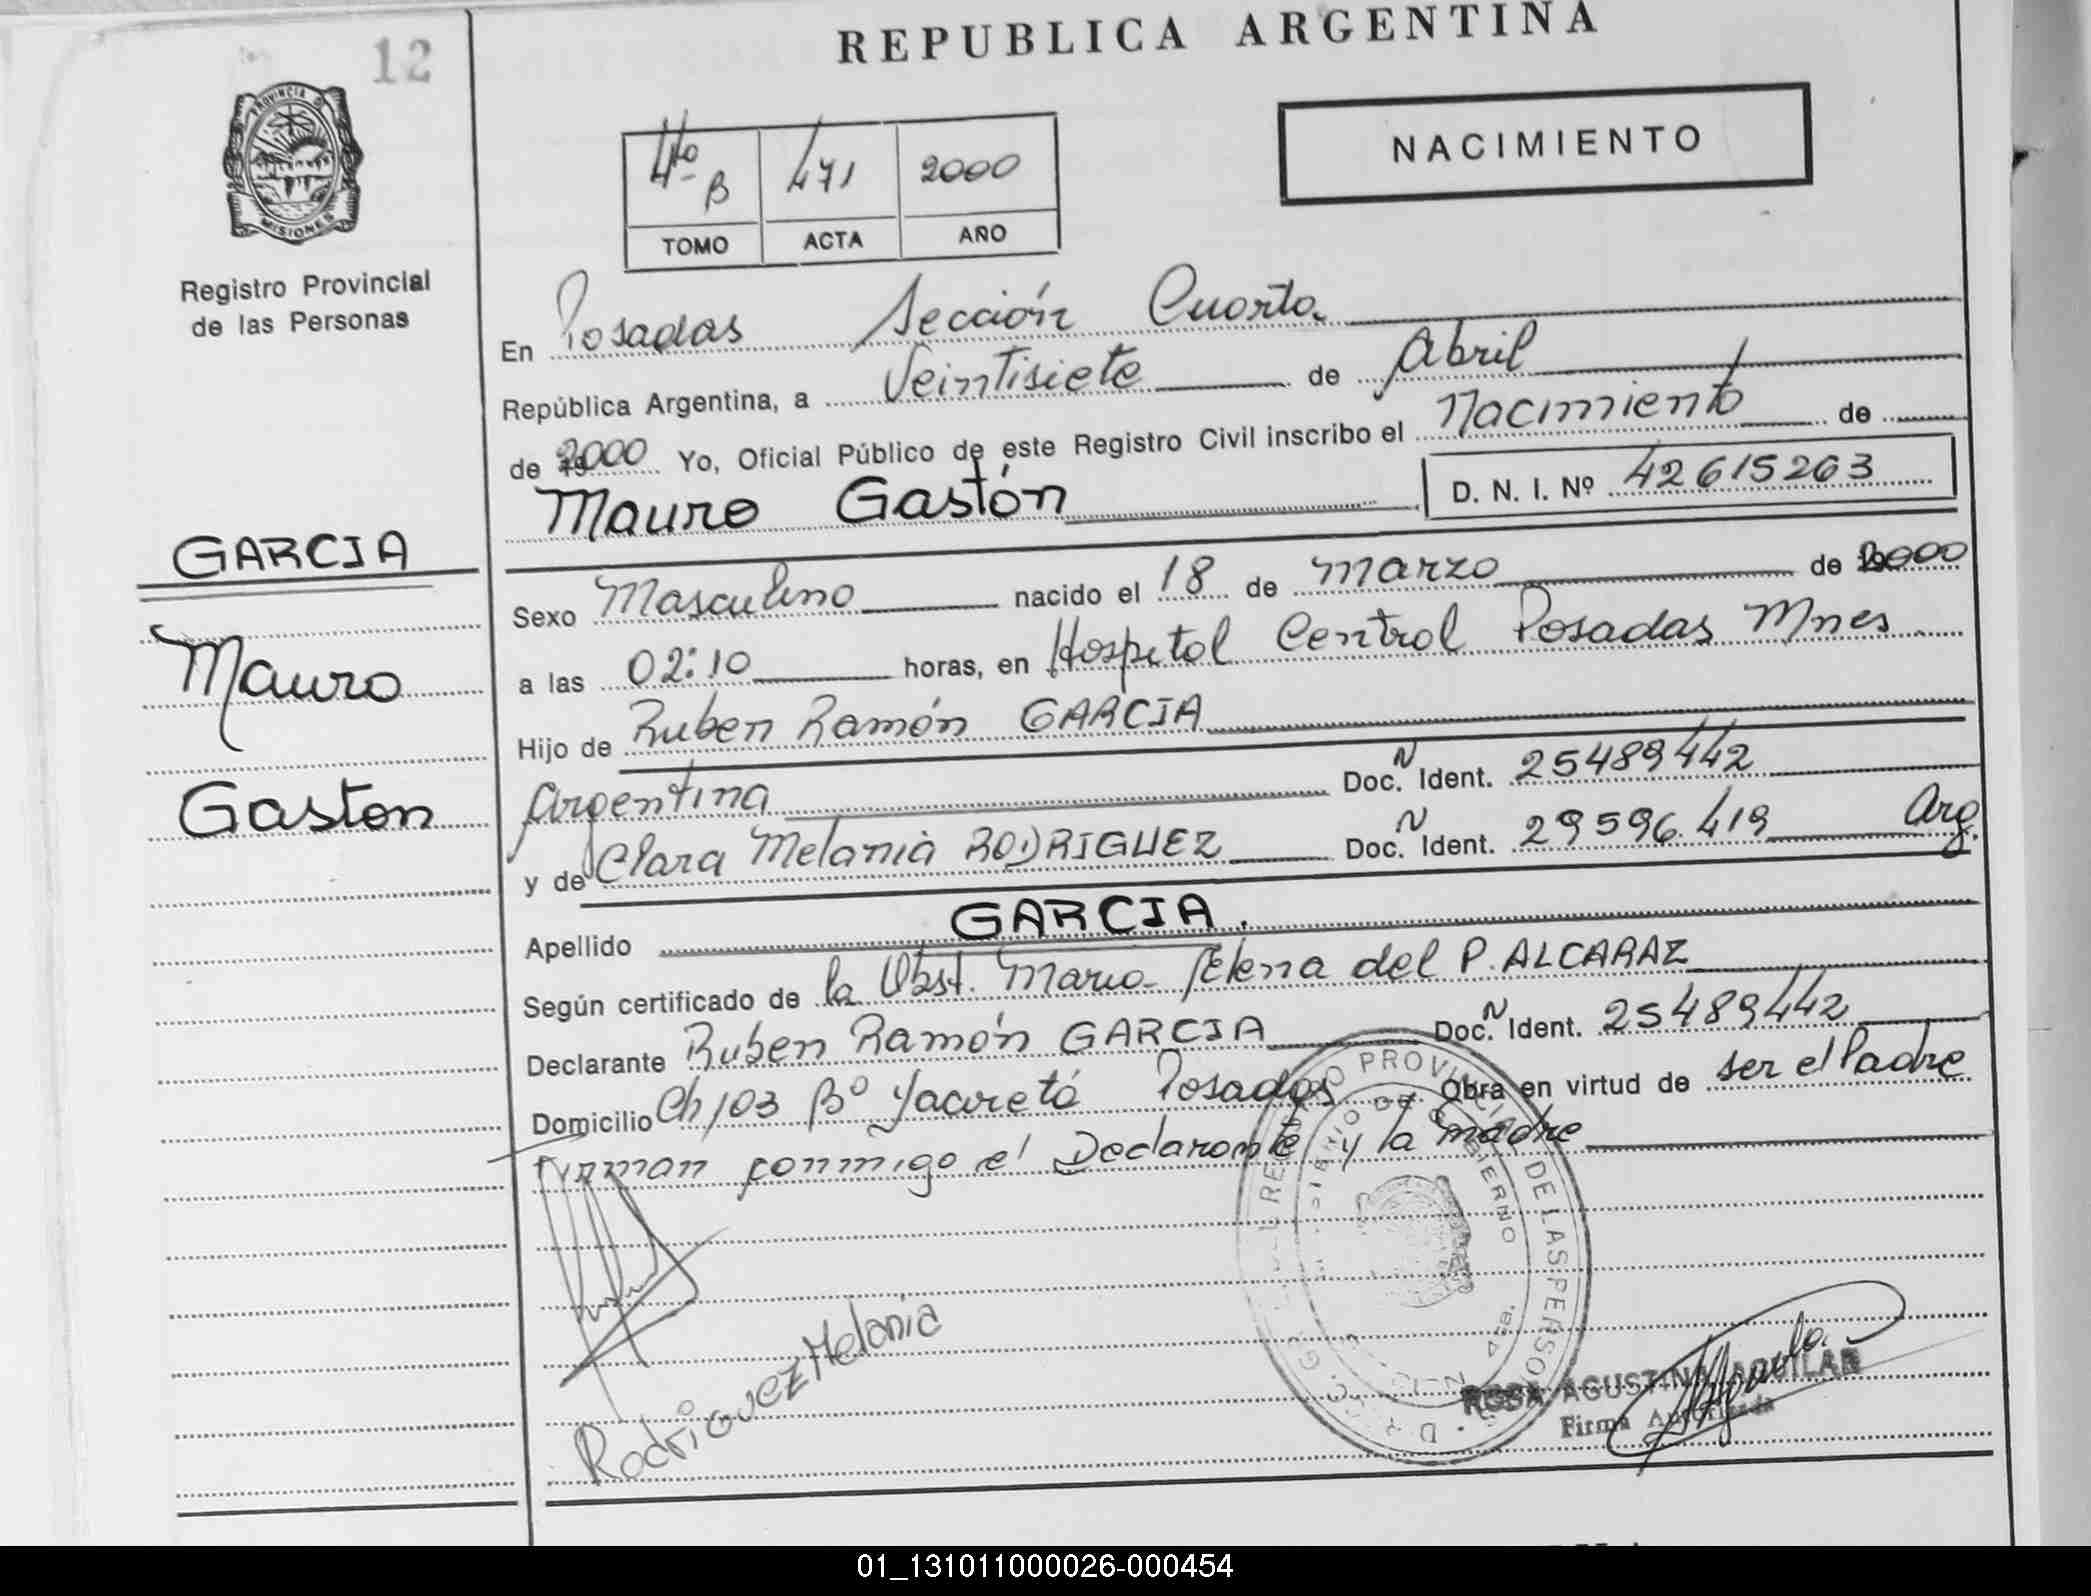 12
REPUBLICA ARGENTINA
PROVINCIA D
MISIONES
Registro Provincial
de las Personas
4to B 471 2000
TOMO ACTA AÑO
NACIMIENTO
En Posadas Sección Cuarta
República Argentina, a Veintisiete de Abril
de 2000 Yo, Oficial Público de este Registro Civil inscribo el Nacimiento de
Mauro Gastón D. N. I. Nº 42615263
GARCIA
Mauro
Gaston
Sexo Masculino nacido el 18 de marzo de 2000
a las 02:10 horas, en Hospital Central Posadas Mnes
Hijo de Ruben Ramón GARCIA
Argentina Doc. N Ident. 25489442
y de Clara Melania RODRIGUEZ Doc. N Ident. 29596.419 Arg.
Apellido GARCIA.
Según certificado de la Obst. Maria Elena del P. ALCARAZ
Declarante Ruben Ramón GARCIA Doc. N Ident. 25489442
Domicilio Ch 103 Bº Yacyretá Posadas Obra en virtud de ser el Padre
Firman conmigo el Declarante y la madre
REGISTRO PROVINCIAL DE LAS PERSONAS
MINISTERIO DE GOBIERNO
Rodriguez Melania
ROSA AGUSTINA AGUILAR
Firma Autorizada
01_131011000026-000454